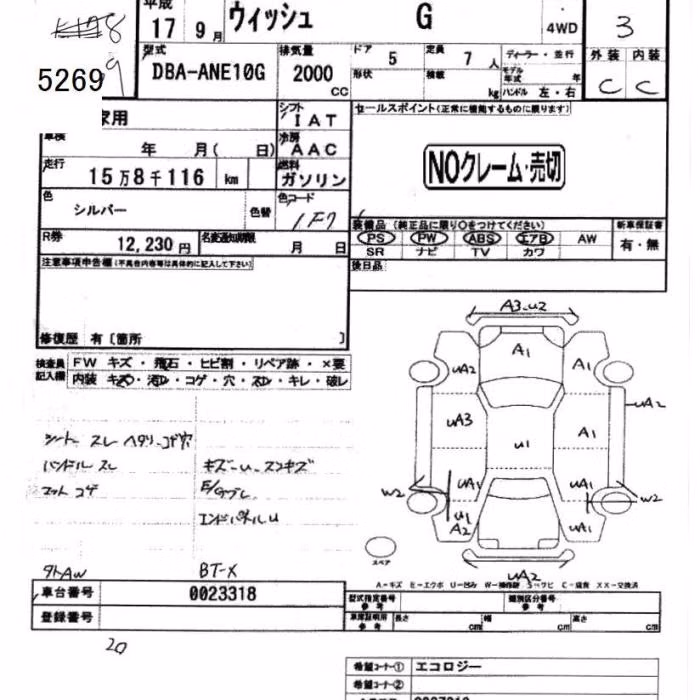 平成 17 9月 ウィッシュ G 4WD 3
52699
型式 DBA-ANE10G 排気量 2000 CC ドア 5 定員 7 人 ディーラー・並行 外装 内装
形状 積載 kg モデル年式 年 ハンドル 左・右 C C
家用 シフト IAT セールスポイント(正常に機能するものに限ります)
車検 年 月( 日) 冷房 AAC
走行 15万8千116 km 燃料 ガソリン NOクレーム・売切
色 シルバー 色替 色コード 1F7
装備品 (純正品に限り○をつけてください) 新車保証書
R券 12,230円 名変通知期限 月 日 PS PW ABS エアB AW 有・無
SR ナビ TV カワ
注意事項申告欄(不具合内容等は具体的に記入して下さい) 後日品
修復歴 有〔箇所 〕
検査員記入欄 FW キズ・飛石・ヒビ割・リペア跡・×要
内装 キズ・汚レ・コゲ・穴・スレ・キレ・破レ
A3 U2
A1
UA2 A1
UA2
UA3 U1 A1
UA1 UA1
W2 W2
U1 A2 UA1
UA2
シート スレ ヘタリ コゲ穴
ハンドル スレ キズ
マット コゲ
エンドパネルU
スペア
外AW BT-X
A-キズ E-エクボ U-凹み W-補修跡 S-サビ C-腐食 XX-交換済
車台番号 0023318 型式指定番号 参考 類別区分番号 参考
登録番号 車庫証明用 参考 長さ cm 幅 cm 高さ cm
20
希望コーナー① エコロジー
希望コーナー②